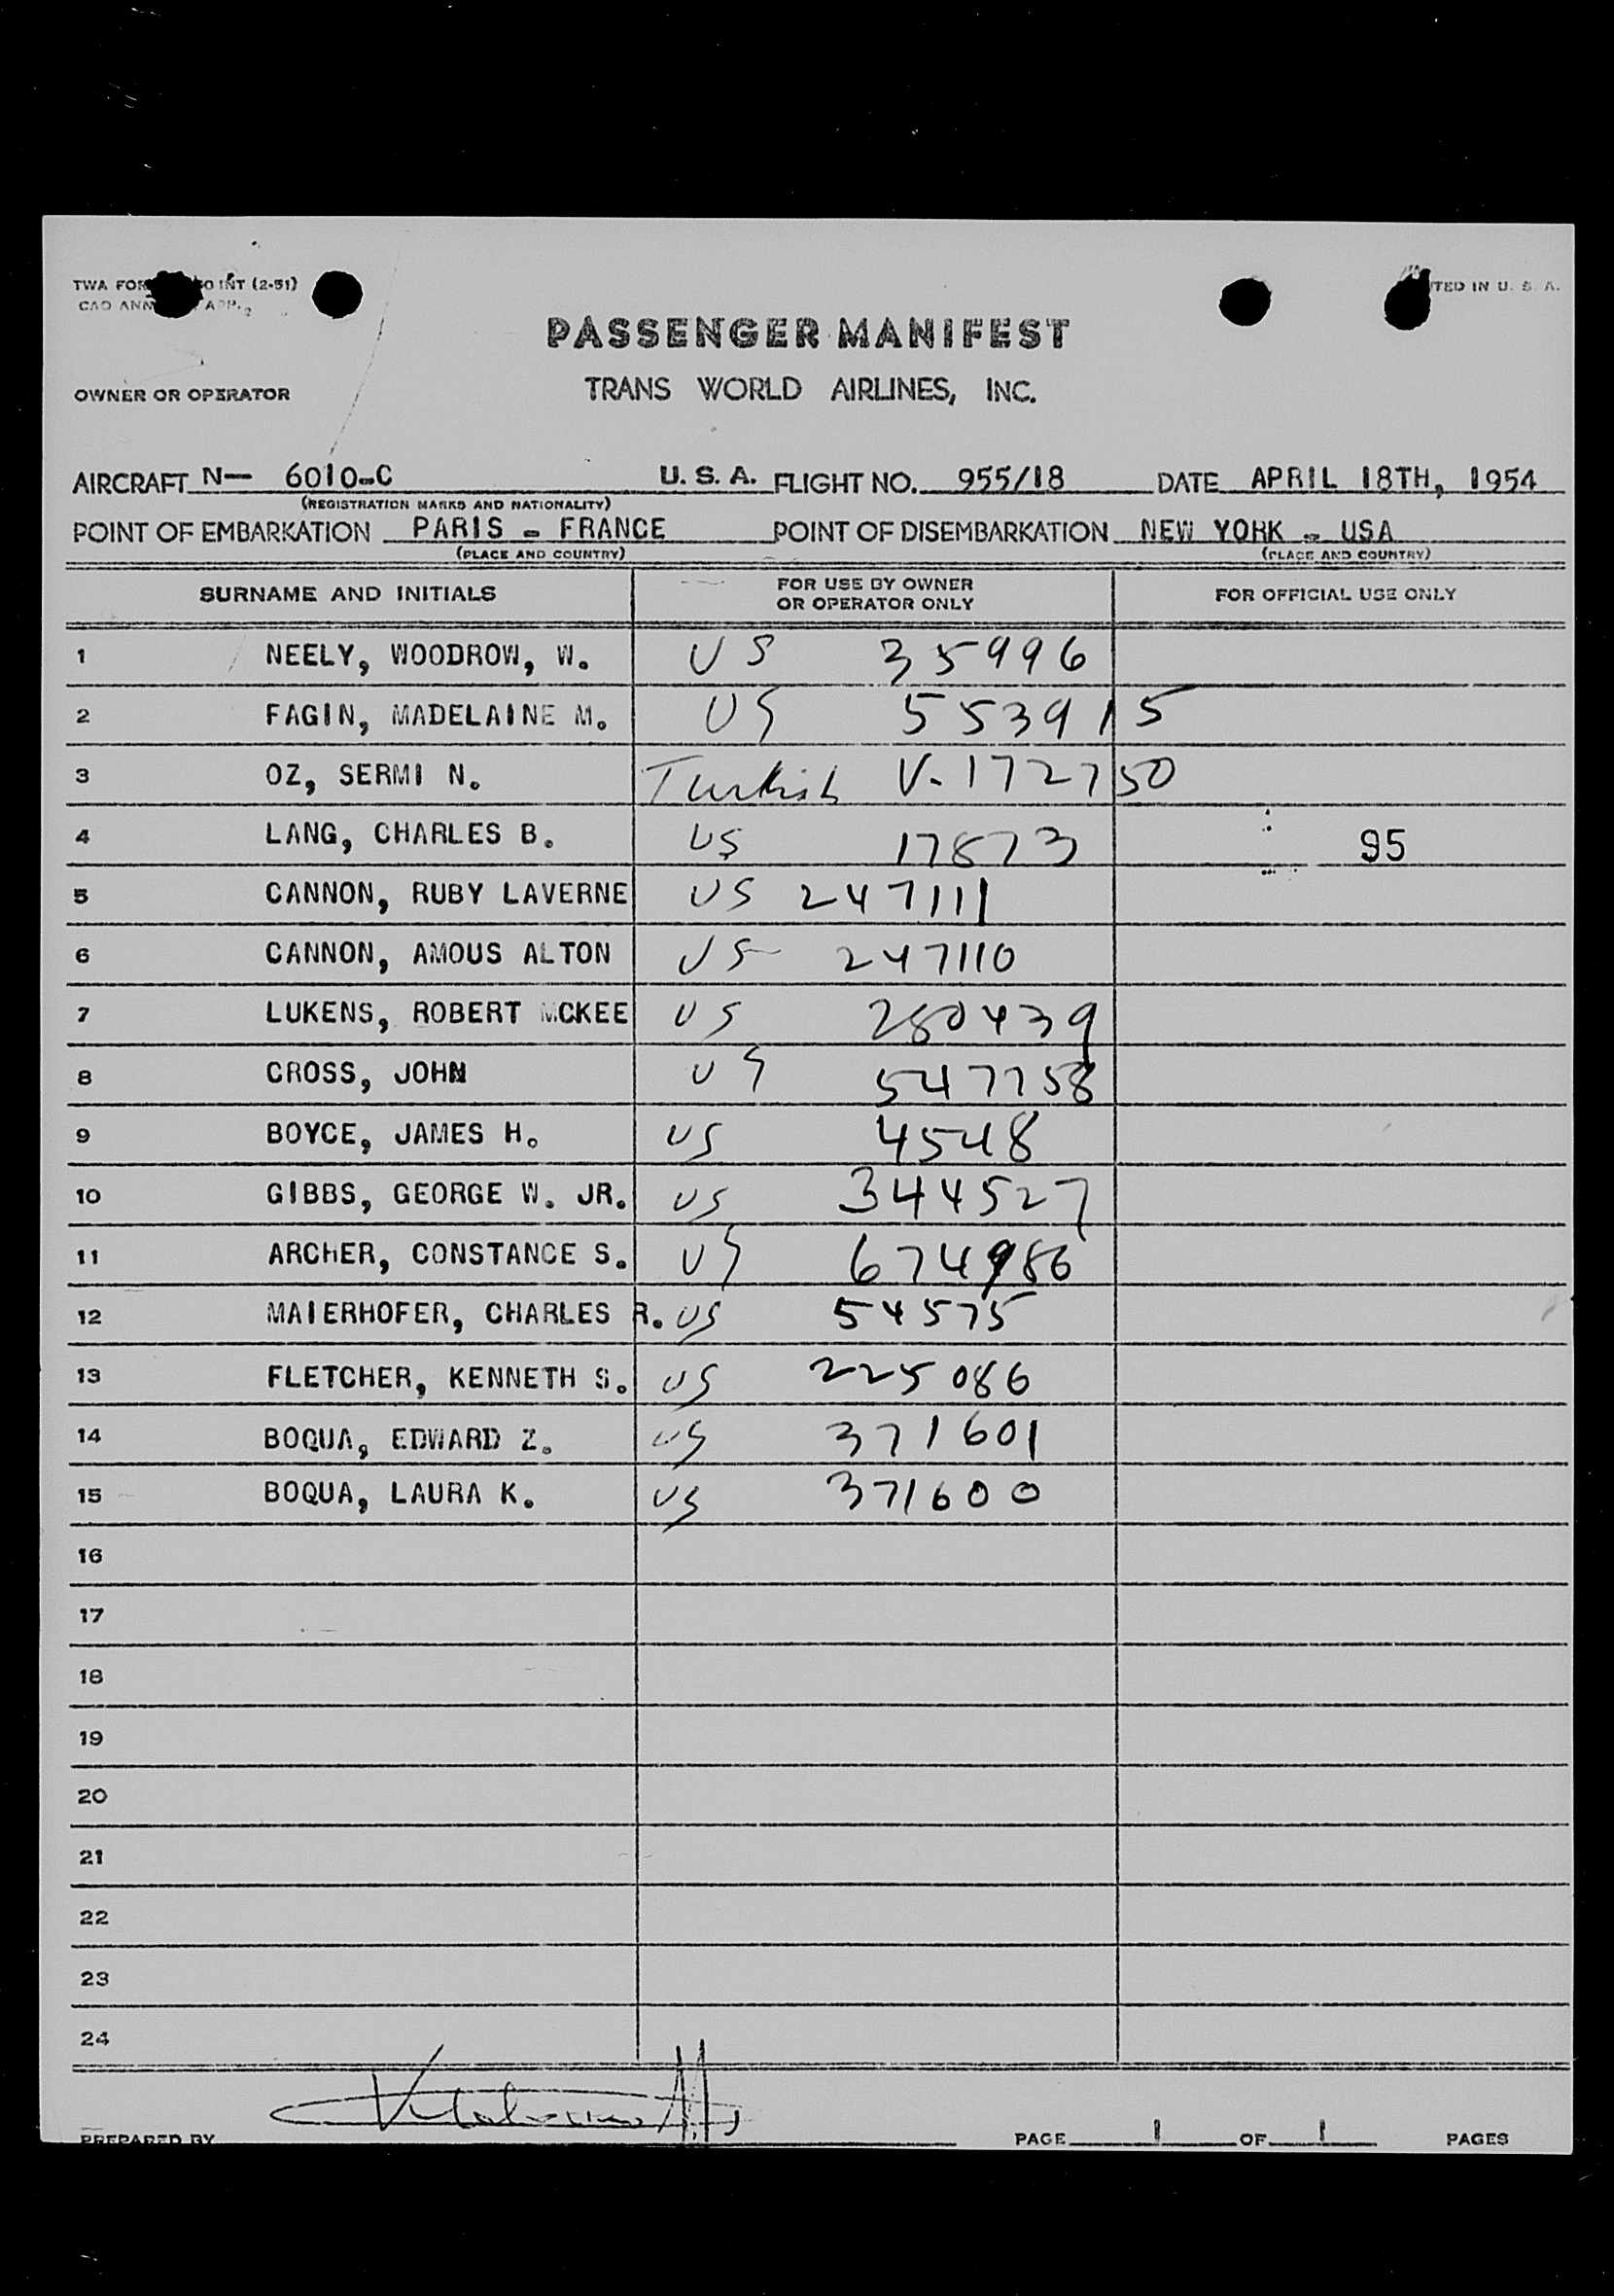 TWA FOR O INT (2-51)
CAO ANN APP. 2
TED IN U. S. A.
PASSENGER MANIFEST
OWNER OR OPERATOR TRANS WORLD AIRLINES, INC.
AIRCRAFT N— 6010-C U. S. A. FLIGHT NO. 955/18 DATE APRIL 18TH, 1954
(REGISTRATION MARKS AND NATIONALITY)
POINT OF EMBARKATION PARIS - FRANCE POINT OF DISEMBARKATION NEW YORK - USA
(PLACE AND COUNTRY) (PLACE AND COUNTRY)
SURNAME AND INITIALS FOR USE BY OWNER OR OPERATOR ONLY FOR OFFICIAL USE ONLY
1 NEELY, WOODROW, W. US 35996
2 FAGIN, MADELAINE M. US 553915
3 OZ, SERMI N. Turkish V-172750
4 LANG, CHARLES B. US 17873 95
5 CANNON, RUBY LAVERNE US 247111
6 CANNON, AMOUS ALTON US 247110
7 LUKENS, ROBERT MCKEE US 280439
8 CROSS, JOHN US 547758
9 BOYCE, JAMES H. US 4548
10 GIBBS, GEORGE W. JR. US 344527
11 ARCHER, CONSTANCE S. US 674986
12 MAIERHOFER, CHARLES R. US 54575
13 FLETCHER, KENNETH S. US 225086
14 BOQUA, EDWARD Z. US 371601
15 BOQUA, LAURA K. US 371600
16
17
18
19
20
21
22
23
24
PREPARED BY PAGE 1 OF 1 PAGES